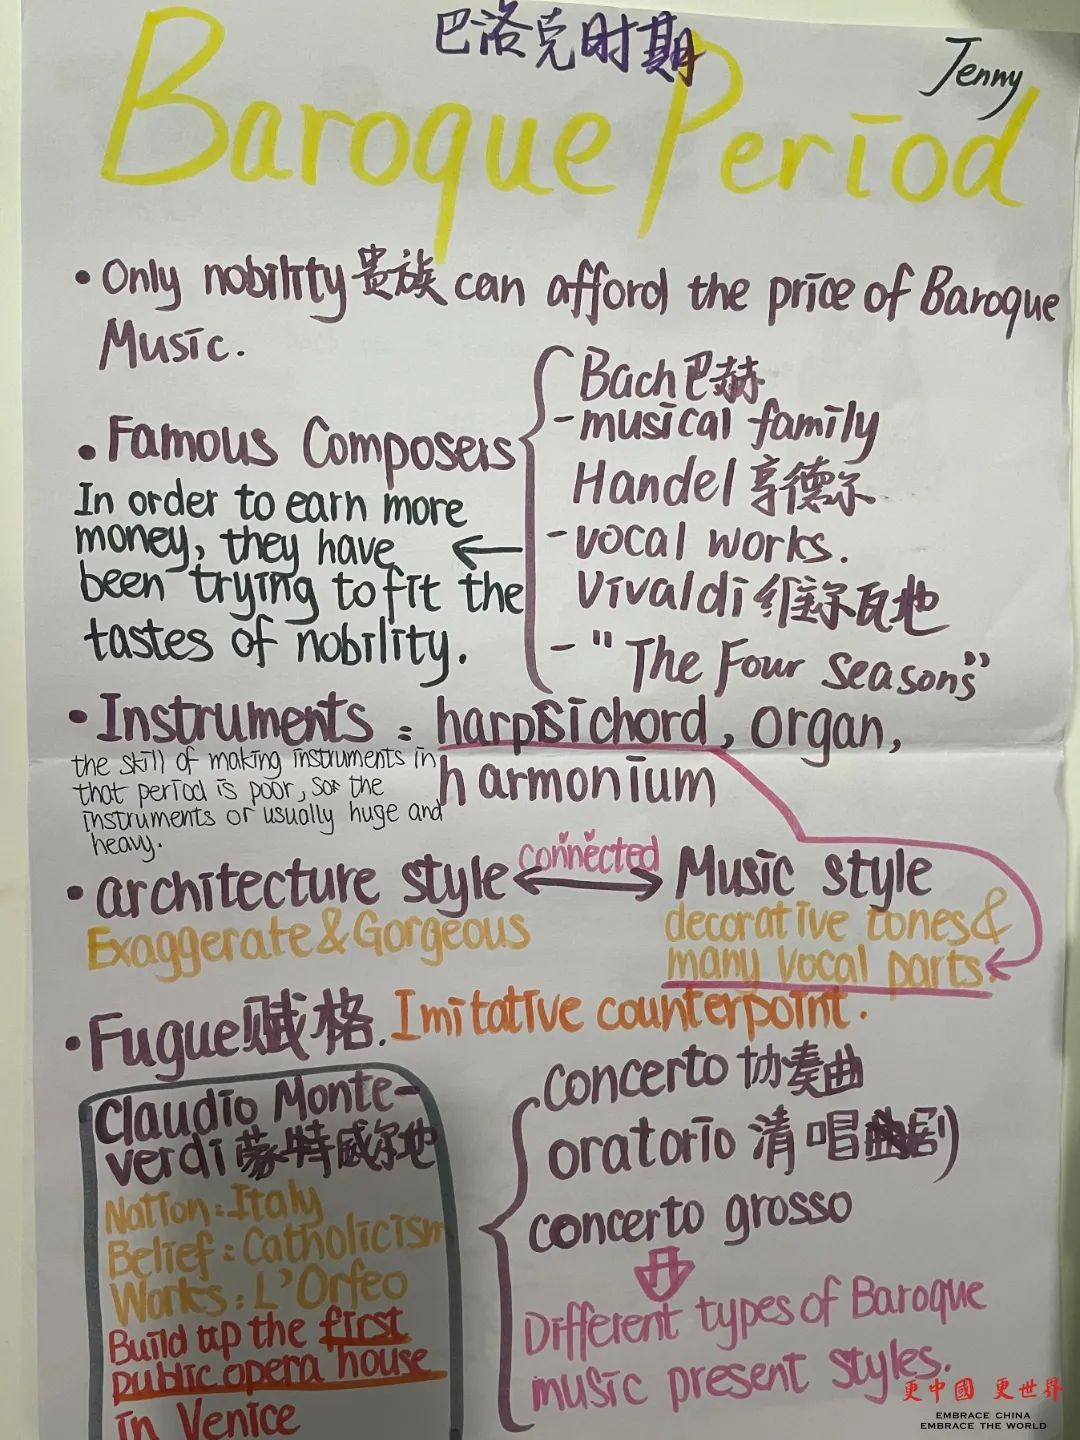 巴洛克时期
Jenny
Baroque Period
• Only nobility贵族 can afford the price of Baroque
Music.
• Famous Composers
Bach巴赫
-musical family
Handel 亨德尔
-vocal works.
Vivaldi 维瓦地
- "The Four Seasons"
In order to earn more
money, they have
been trying to fit the
tastes of nobility.
• Instruments : harpsichord, organ,
harmonium
the skill of making instruments in
that period is poor, so the
instruments or usually huge and
heavy.
• architecture style connected Music style
Exaggerate & Gorgeous
decorative tones &
many vocal parts.
• Fugue赋格. Imitative counterpoint.
Claudio Monte-
verdi 蒙特威尔地
Nation: Italy
Belief: Catholicism
Works: L'Orfeo
Build up the first
public opera house
in Venice
concerto 协奏曲
oratorio 清唱剧)
concerto grosso
Different types of Baroque
music present styles.
更中國 更世界
EMBRACE CHINA
EMBRACE THE WORLD